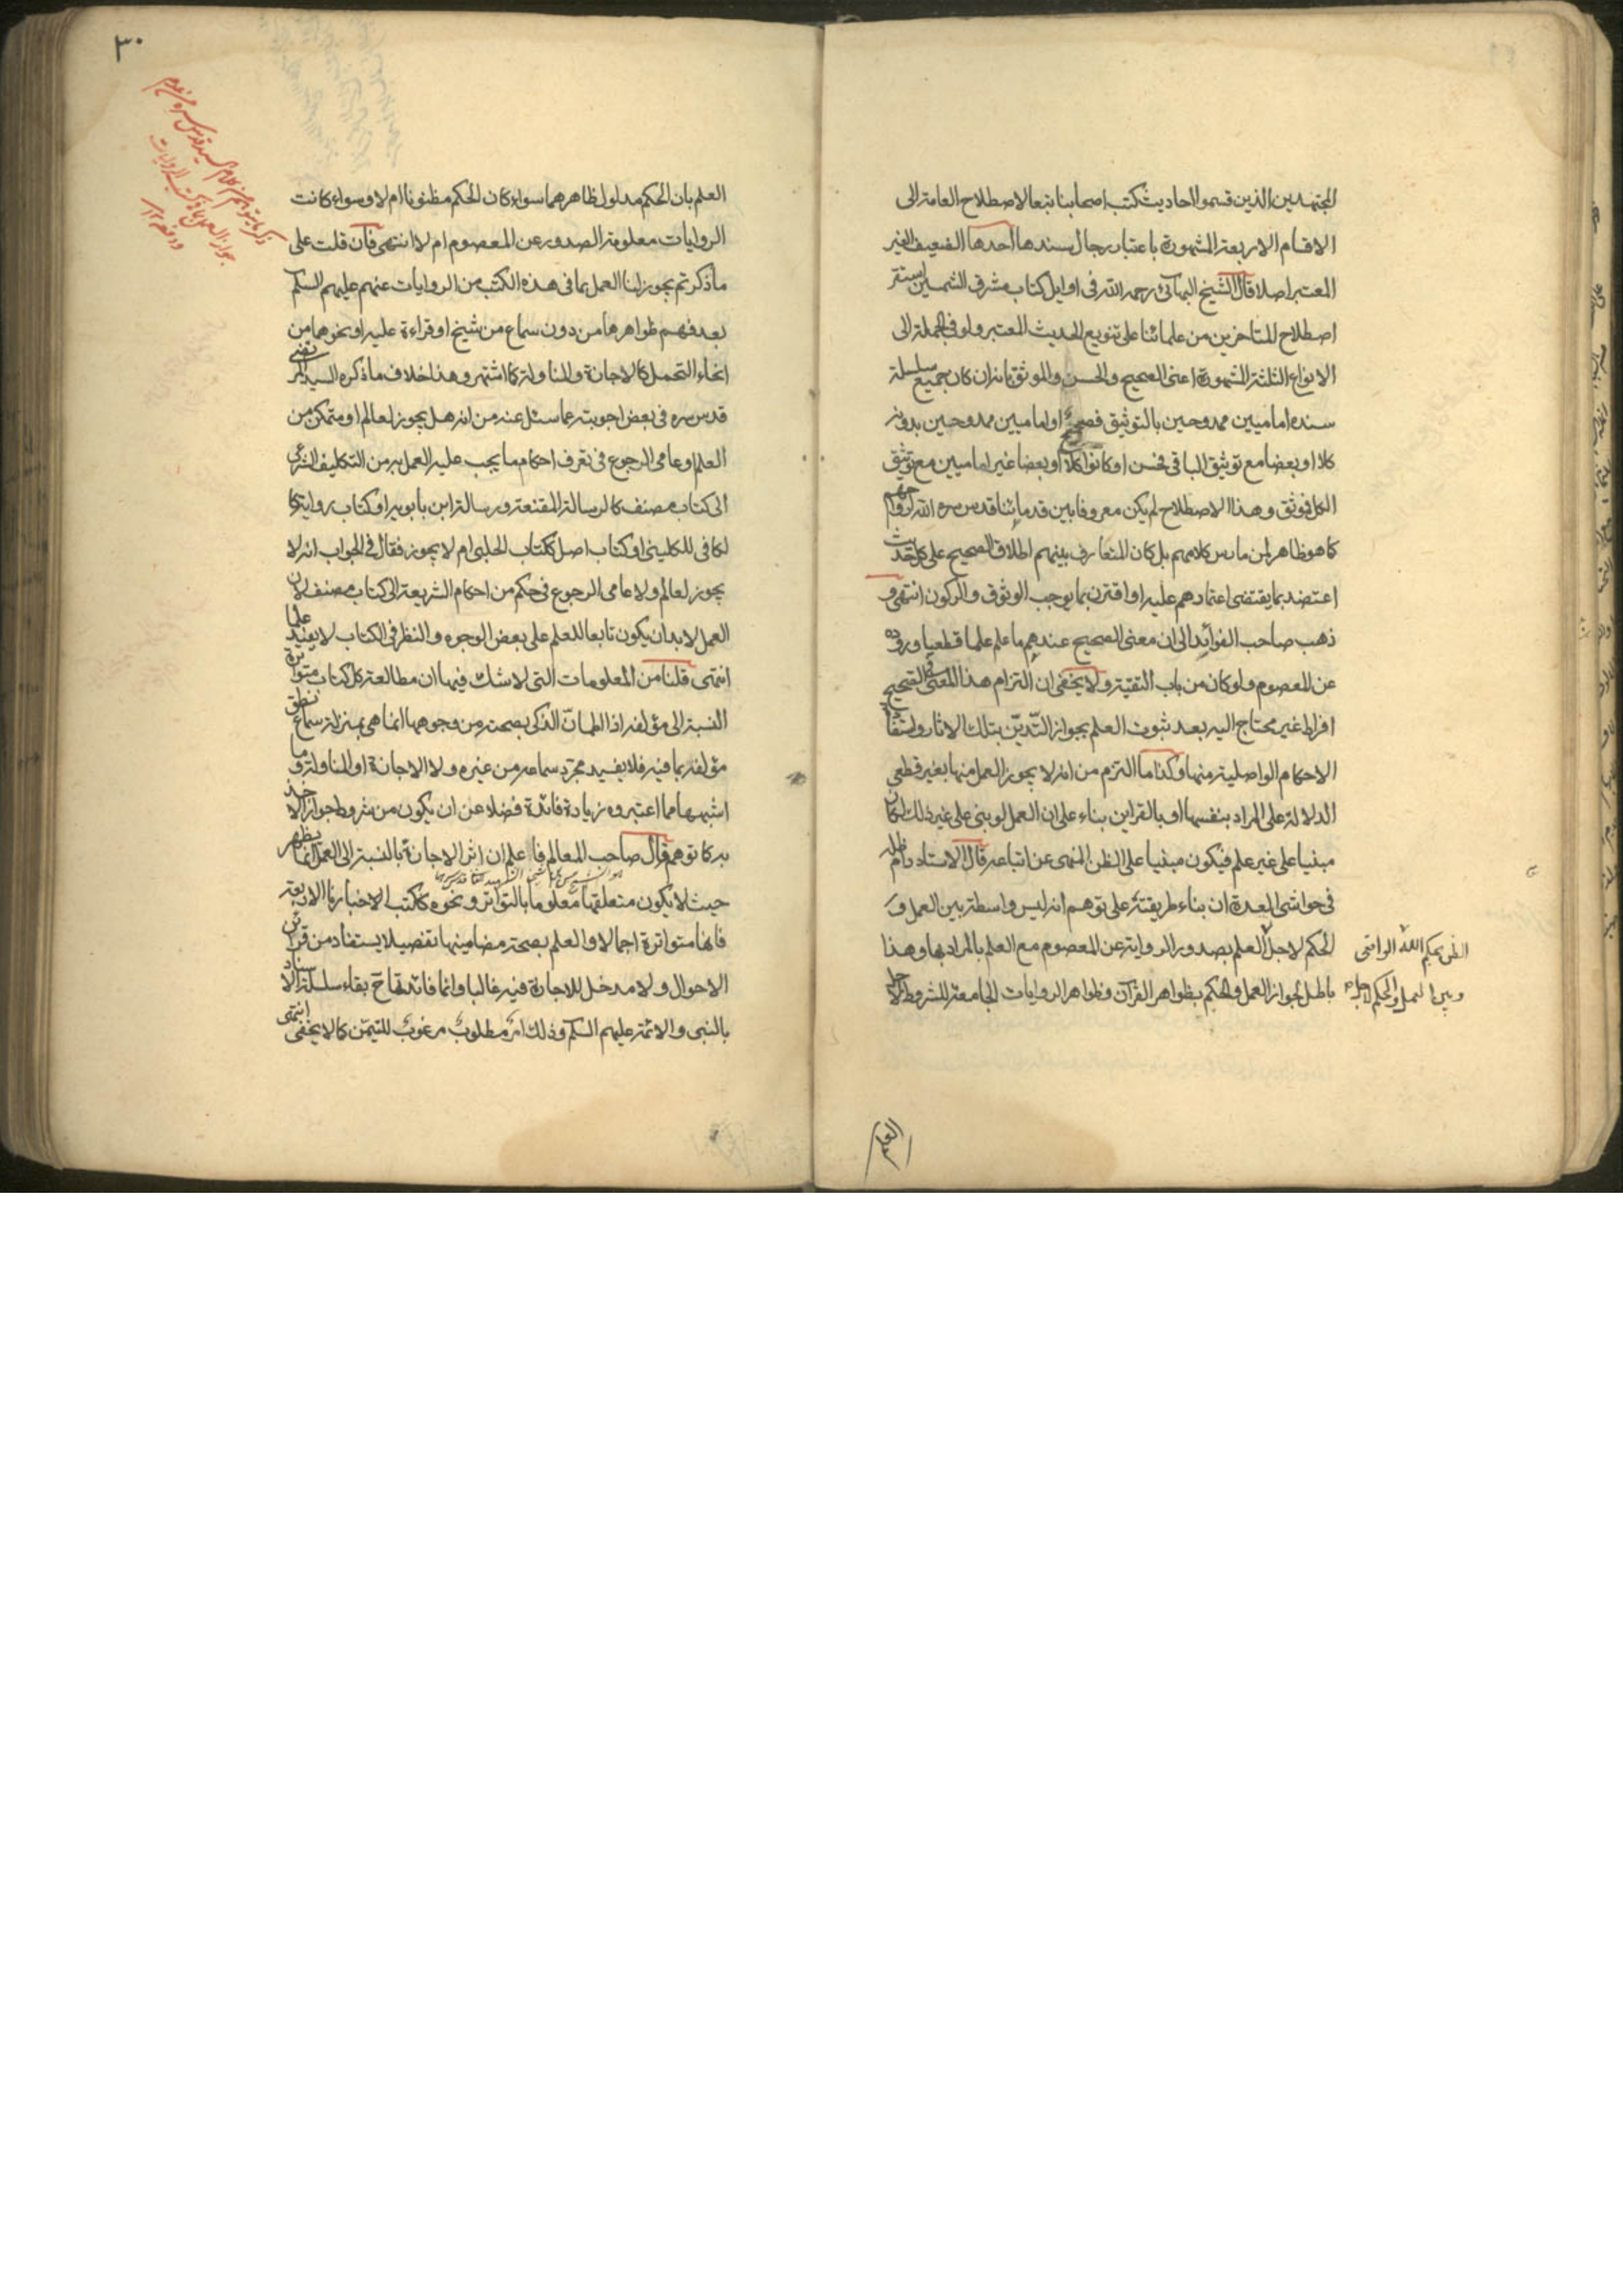 المجتهدين الذين قسموا احاديث كتب اصحابنا تبعا لاصطلاح العامة الى
الاقسام الاربعة المشهورة باعتبار رجال سندها احدها الضعيف الغير
المعتبر اصلا قال الشيخ البهائي رحمه الله في اوايل كتاب مشرق الشمسين استقر
اصطلاح المتاخرين من علمائنا على تنويع الحديث المعتبر ولو في الجملة الى
الانواع الثلثة المشهورة اعنى الصحيح والحسن والموثق بانه ان كان جميع سلسلة
سنده اماميين ممدوحين بالتوثيق فصحيح او اماميين ممدوحين بدونه
كلا او بعضا مع توثيق الباقى فحسن او كانوا كلا او بعضا غير اماميين مع توثيق
الكل فموثق وهذا الاصطلاح لم يكن معروفا بين قدمائنا قدس سره الله ارواحهم
كما هو ظاهر لمن مارس كلامهم بل كان المتعارف بينهم اطلاق الصحيح على كل حديث
اعتضد بما يقتضى اعتمادهم عليه او اقترن بما يوجب الوثوق والركون انتهى و
ذهب صاحب الفوائد الى ان معنى الصحيح عندهم ما علم علما قطعيا وروده
عن المعصوم ولو كان من باب التقية ولا يخفى ان التزام هذا المعنى فى الصحيح
افراط غير محتاج اليه بعد ثبوت العلم بجواز التديّن بتلك الاثار
الاحكام الواصلية منها وكذا ما التزم من انه لا يجوز العمل منها بغير قطعى
الدلالة على المراد بنفسها او بالقراين بناء على ان العمل لو بنى على غير ذلك لكان
مبنيا على غير علم فيكون مبنيا على الظن المنهى عن اتباعه قال الاستاد دام ظله
فى حواشى العدة ان بناء طريقته على توهم انه ليس واسطة بين العمل و
الحكم لاجل العلم بصدور الرواية عن المعصوم مع العلم بالمراد بها وهذا
باطل لجواز العمل والحكم بظواهر القرآن وظواهر الروايات الجامعة للشروط لاجل
الظن بحكم الله الواقعى
وبين العمل والحكم لاجل
العلم
٣٠
العلم بان الحكم مدلول ظاهرهما سواء كان الحكم مظنونا ام لا وسواء كانت
الروايات معلومة الصدور عن المعصوم ام لا انتهى فان قلت على
ما ذكرتم يجوز لنا العمل بما فى هذه الكتب من الروايات عنهم عليهم السلم
بعد فهم ظواهرها من دون سماع من شيخ او قراءة عليه او نحوهما من
انحاء التحمل كالاجازة والمناولة كما اشتهر وهذا خلاف ما ذكره السيد المرتضى
قدس سره فى بعض اجوبته عما سئل عنه من انه هل يجوز لعالم او متمكن من
العلم او عامى الرجوع فى تعرف احكام ما يجب عليه العمل به من التكليف الشرعى
الى كتاب مصنف كالرسالة المقنعة ورسالة ابن بابويه او كتاب رواية كا
لكافى للكلينى او كتاب اصل ككتاب الحلبى ام لا يجوز فقال فى الجواب انه لا
يجوز لعالم ولا عامى الرجوع فى حكم من احكام الشريعة الى كتاب مصنف لان
العمل لا بد ان يكون تابعا للعلم على بعض الوجوه والنظر فى الكتاب لا يفيد علما
انتهى قلنا من المعلومات التى لا شك فيها ان مطالعة كل كتاب متواترة
النسبة الى مؤلفه اذا اطمان الذكى بصحته من وجوهها انما هى بمنزلة سماع نطق
مؤلفه بما فيه فلا يفيد مجرّد سماعه من غيره ولا الاجازة او المناولة وما
اشبهها مما اعتبروه زيادة فائدة فضلا عن ان يكون من شروط جواز الاخذ
به كما توهم قال صاحب المعالم فاعلم ان اثر الاجازة بالنسبة الى العمل انما يظهر
حيث لا يكون متعلقها معلوما بالتواتر ونحوه ككتب الاخبارنا الاربعة
فانها متواترة اجمالا والعلم بصحة مضامينها تفصيلا يستفاد من قرائن
الاحوال ولا مدخل للاجازة فيه غالبا وانما فائدتها ح بقاء سلسلة الاسناد
بالنبى والائمة عليهم السلم وذلك امر مطلوب مرغوب للتيمّن كما لا يخفى انتهى